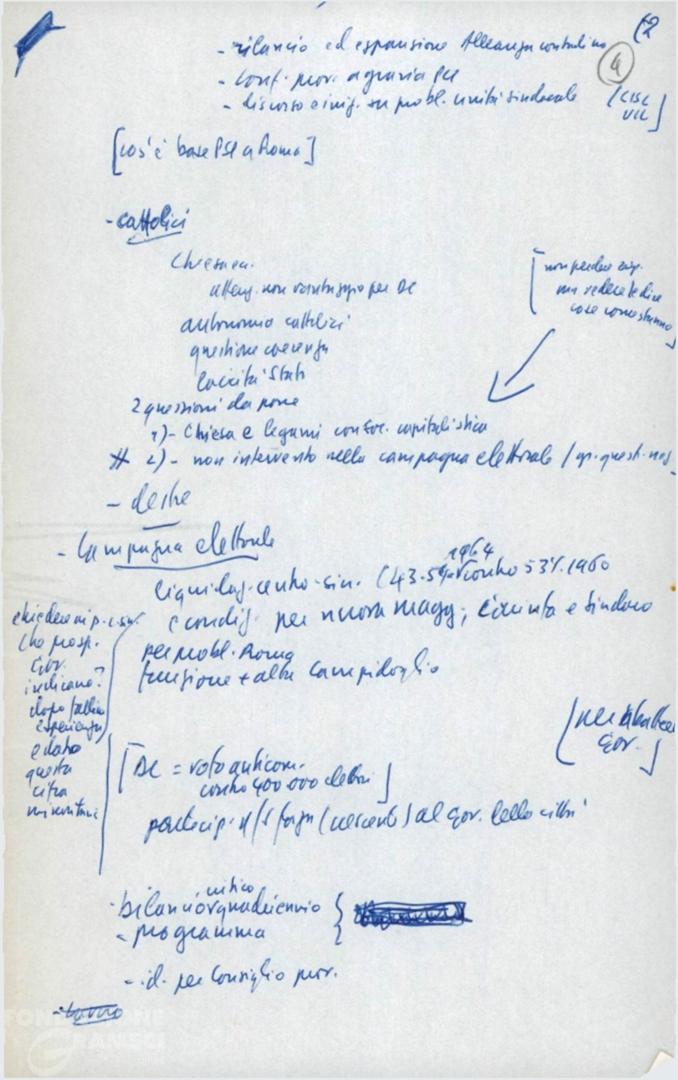 - rilancio ed espansione Alleanza contadina
4
- conf. prov. agraria PCI
- discorso e iniz. su probl. unità sindacale [CISL UIL]
[cos'è base PSI a Roma]
- cattolici
Chiesa
non vantaggio per DC
autonomia cattolici
questione
laicità Stato
[non perdere
ma vedere le dire
cose come stanno]
2 questioni da porre
1) - Chiesa e legami con soc. capitalistica
# 2) - non intervento nella campagna elettorale
- destre
- Campagna elettorale
centro-sin. (43.5% 1964 contro 53% 1960
e condiz. per nuova magg., Giunta e sindaco
per probl. Roma
funzione + alta Campidoglio
chiedere
che prosp.
Gov.
indicano?
dopo fallim.
esperienza
e dato
questa
cifra
[per
Gov.]
[DC = voto anticom.
contro 400.000 elettori]
partecip. (crescente) al Gov. della città
- bilancio critico quadriennio
- programma
- id. per Consiglio prov.
FONDAZIONE
GRAMSCI